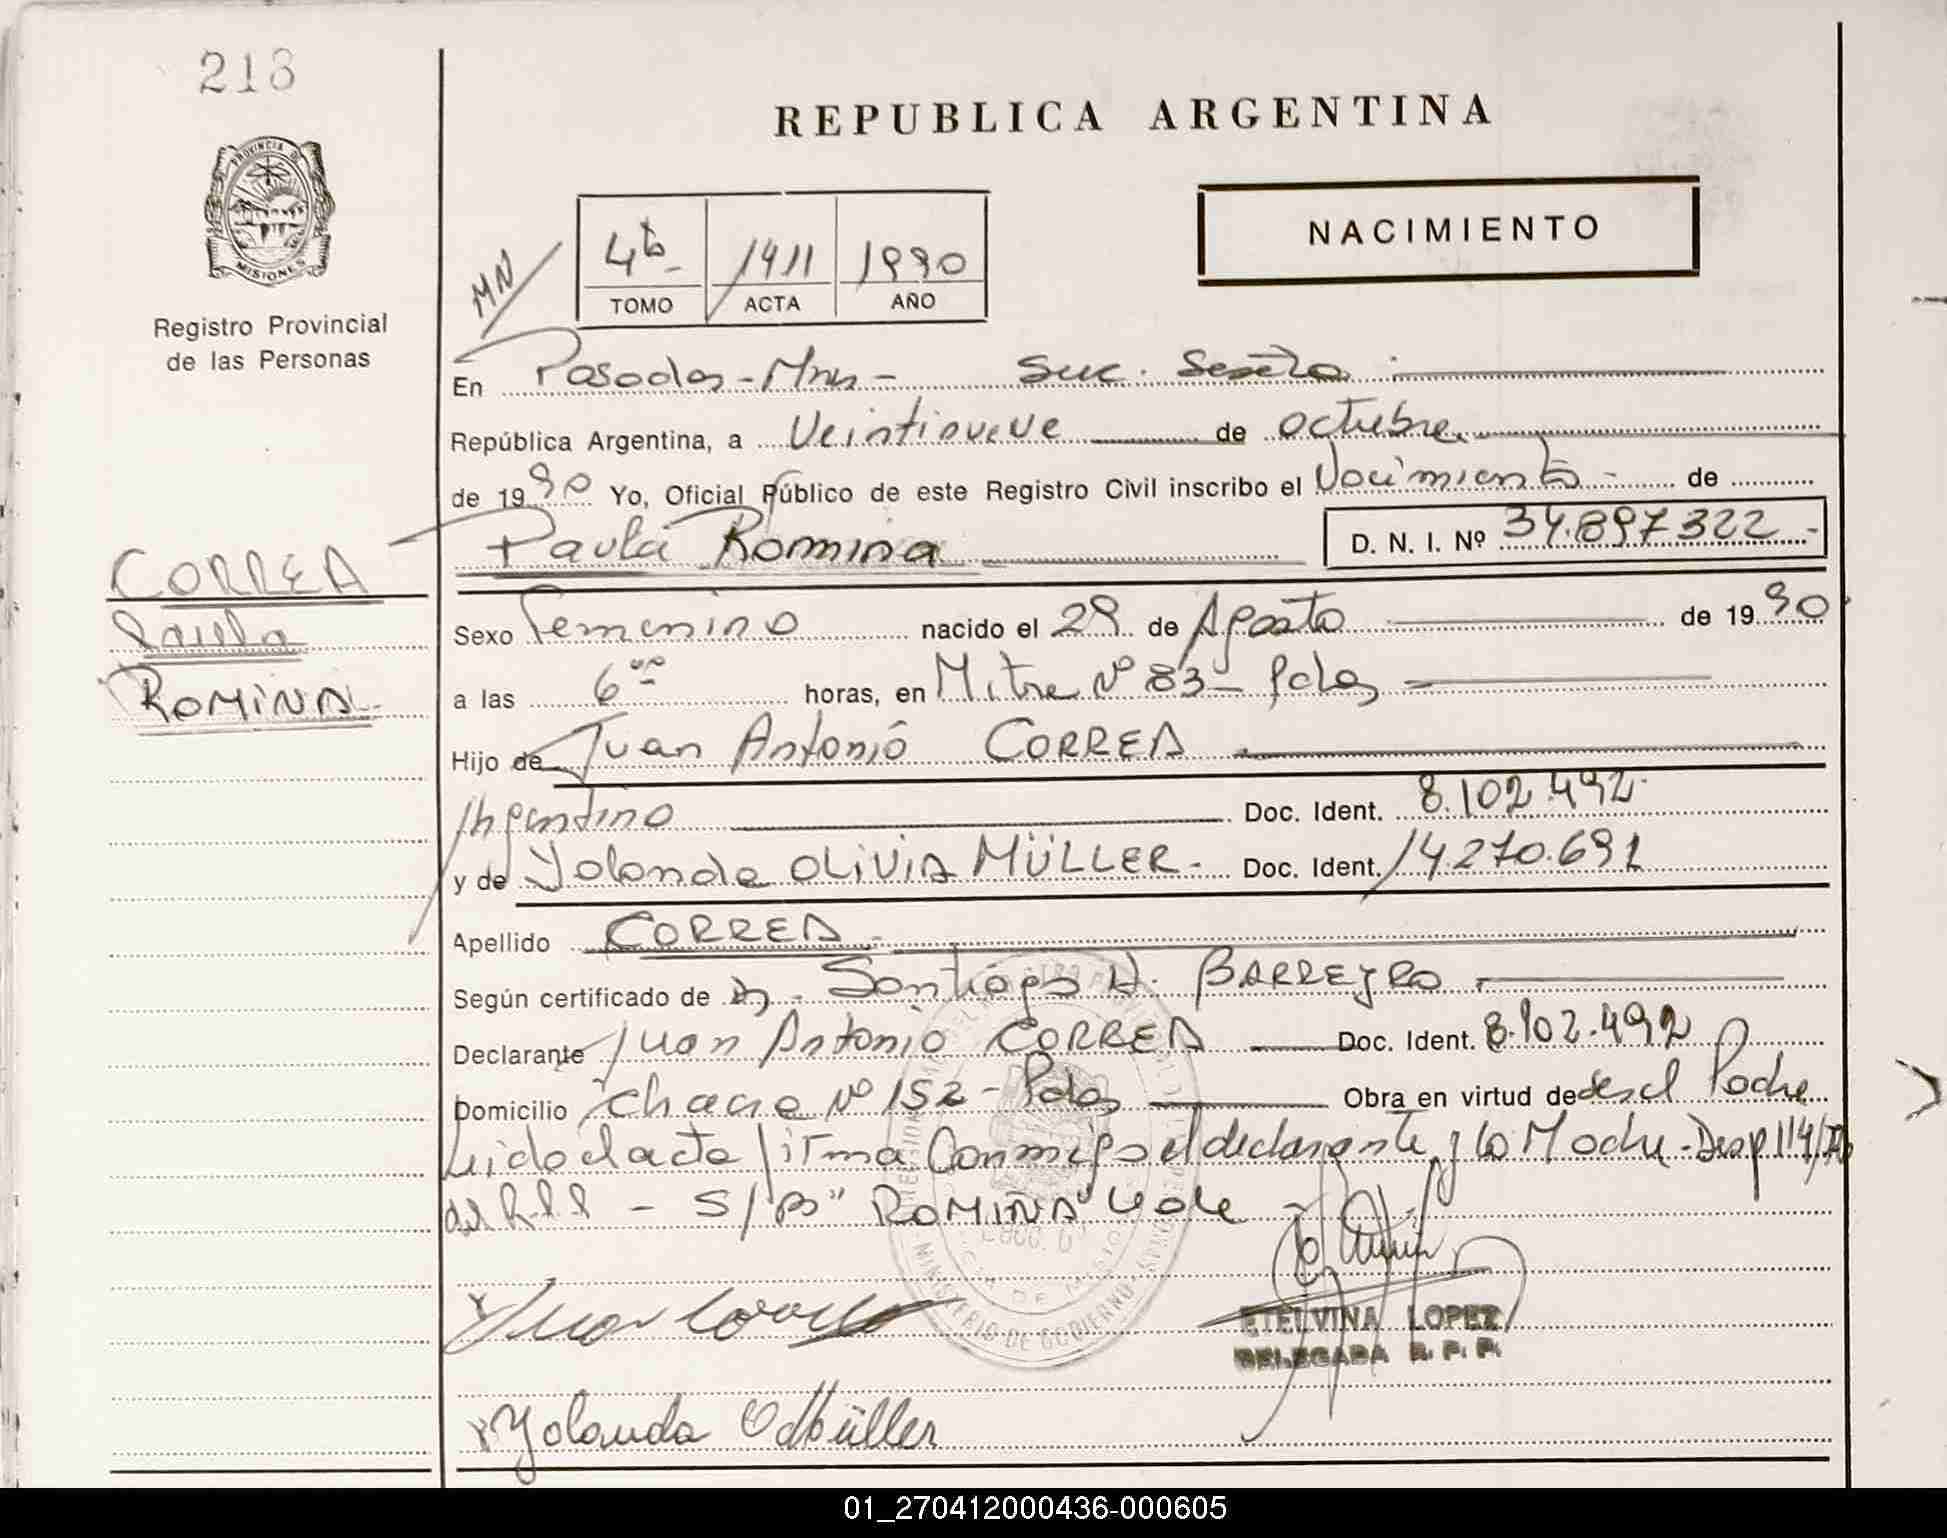 218
REPUBLICA ARGENTINA
PROVINCIA DE
MISIONES
NACIMIENTO
MN/
4to 1411 1990
TOMO ACTA AÑO
Registro Provincial
de las Personas
En Posadas - Mnes - Suc. Sexta
República Argentina, a Veintinueve de octubre
de 1990 Yo, Oficial Público de este Registro Civil inscribo el Nacimiento de
Paula Romina D. N. I. Nº 34.897322
CORREA
Paula
ROMINA
Sexo Femenino nacido el 29 de Agosto de 1990
a las 6 horas, en Mitre Nº 83 - Pdas
Hijo de Juan Antonio CORREA
Argentino Doc. Ident. 8.102.492
y de Yolanda OLIVIA MÜLLER - Doc. Ident. 14.270.691
Apellido CORREA
Según certificado de Santiago H. BARREYRO
Declarante Juan Antonio CORREA Doc. Ident. 8.102.492
Domicilio Chacra Nº 152 - Pdas Obra en virtud de ser el Padre
Leido el acta firma Conmigo el declarante y la Madre - Desp 114/
del R.P.P - S/B "ROMINA" Vale
MINISTERIO DE GOBIERNO
Juan Correa
ETELVINA LOPEZ
DELEGADA R. P. P.
Yolanda O Müller
01_270412000436-000605